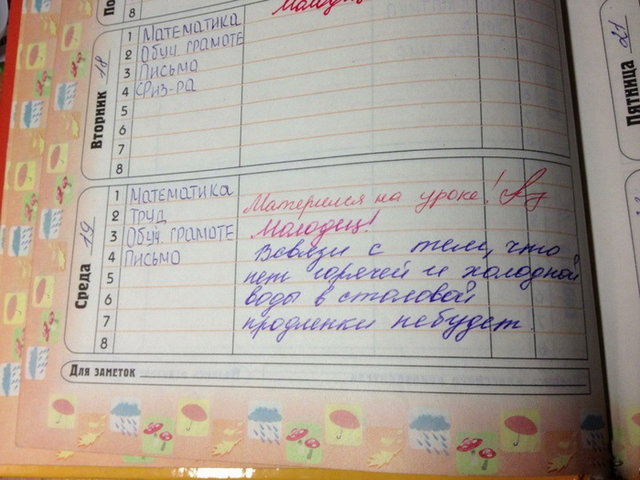 8 Молодец
Вторник 18
1 Математика
2 Обуч. грамоте
3 Письмо
4 Физ-ра
5
6
7
8
Среда 19
1 Математика
2 Труд
3 Обуч. грамоте
4 Письмо
5
6
7
8
Матерился на уроке!
Молодец!
Всвязи с тем, что
нет горячей и холодной
воды в столовой
продленки небудет
Для заметок
Пятница 21